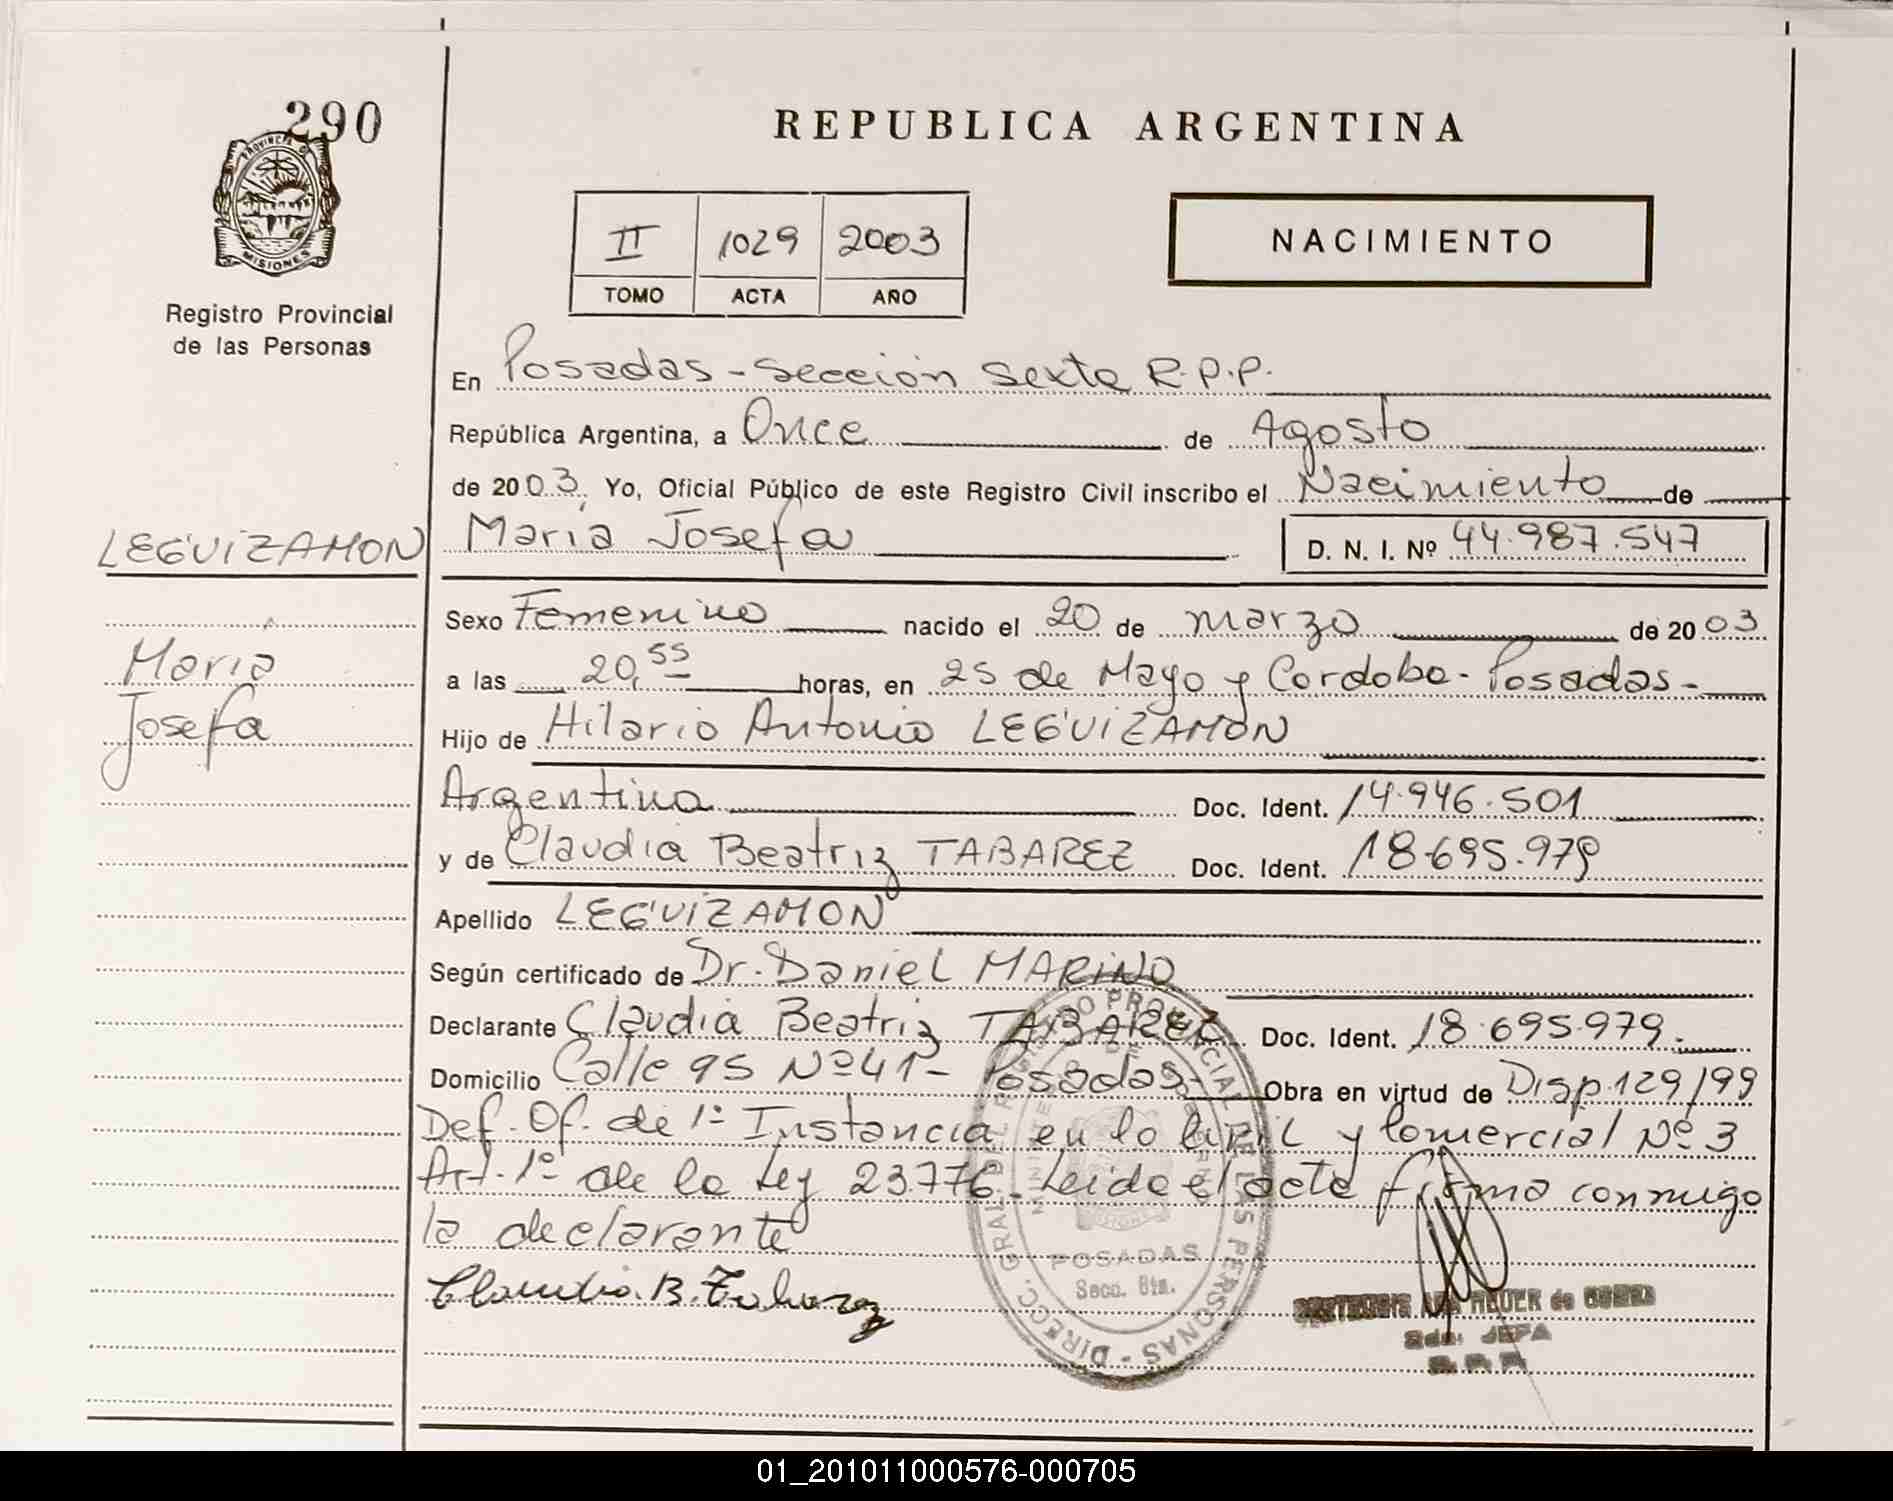 290
PROVINCIA D
MISIONES
Registro Provincial
de las Personas
REPUBLICA ARGENTINA
II 1029 2003
TOMO ACTA AÑO
NACIMIENTO
En Posadas - Sección Sexta R.P.P.
República Argentina, a Once de Agosto
de 2003, Yo, Oficial Público de este Registro Civil inscribo el Nacimiento de
LEGUIZAMON
María Josefa
D. N. I. Nº 44.987.547
Sexo Femenino nacido el 20 de marzo de 2003
María
Josefa
a las 20,55 horas, en 25 de Mayo y Cordoba - Posadas -
Hijo de Hilario Antonio LEGUIZAMON
Argentina Doc. Ident. 14.946.501
y de Claudia Beatriz TABAREZ Doc. Ident. 18.695.979
Apellido LEGUIZAMON
Según certificado de Dr. Daniel MARINO
Declarante Claudia Beatriz TABAREZ Doc. Ident. 18.695.979.
Domicilio Calle 95 Nº 41 - Posadas - Obra en virtud de Disp. 129/99
Def. Of. de 1º Instancia en lo Civil y Comercial Nº 3
Art. 1º de la Ley 23.776 - Leida el acta firma conmigo
la declarante
Claudia B. Tabarez
DIRECC. GRAL DEL REGISTRO PROVINCIAL DE LAS PERSONAS -
POSADAS
Secc. 6ta.
JEFA
01_201011000576-000705